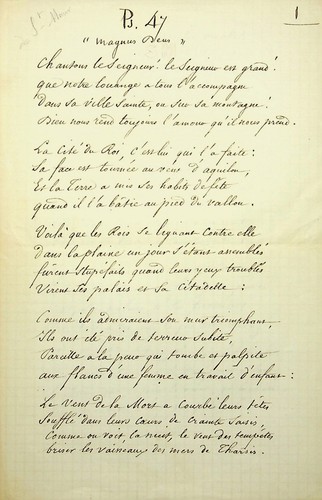 Ps. 47
1
"Magnus Deus"
Chantons le Seigneur! le Seigneur est grand!
que notre louange à tous l'accompagne
Dans sa ville Sainte, ou Sur Sa montagne!
Bien nous rend toujours l'amour qu'il nous prend.
La Cité du Roi, c'est lui qui l'a faite:
Sa face est tournée au vent d'aquilon,
Et la Terre a mis Ses habits de fête
quand il l'a bâtie au pied du vallon.
Voilà que les Rois se liguant Contre elle
dans la plaine un jour S'étant assemblés
furent Stupéfaits quand leurs yeux troublés
Virent Ses palais et Sa Citadelle:
Comme ils admiraient Son mur triomphant,
Ils ont été pris de terreur Subite,
Pareille à la peur qui tombe et palpite
aux flancs d'une femme en travail d'enfant:
Le Vent de la Mort a Courbé leurs têtes
Soufflé dans leurs Cœurs de Crainte Saisis,
Comme on voit, la nuit, le vent des tempêtes
briser les vaisseaux des mers de Tharsis.